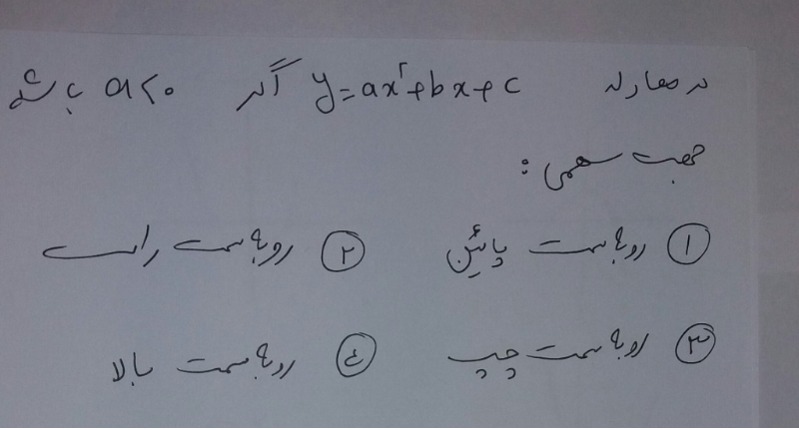 در معادله y=ax²+bx+c اگر a<۰ باشد
جهت سهمی :
① رو به سمت پائین ② رو به سمت راست
③ رو به سمت چپ ④ رو به سمت بالا